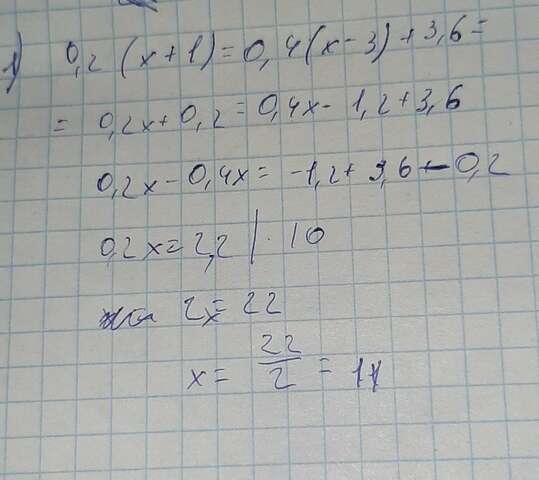 1) 0,2 (x+1) = 0,4(x-3)+3,6 =
= 0,2x+0,2 = 0,4x-1,2+3,6
0,2x-0,4x= -1,2+3,6-0,2
0,2x=2,2 | · 10
2x=22
x= 22/2 = 11